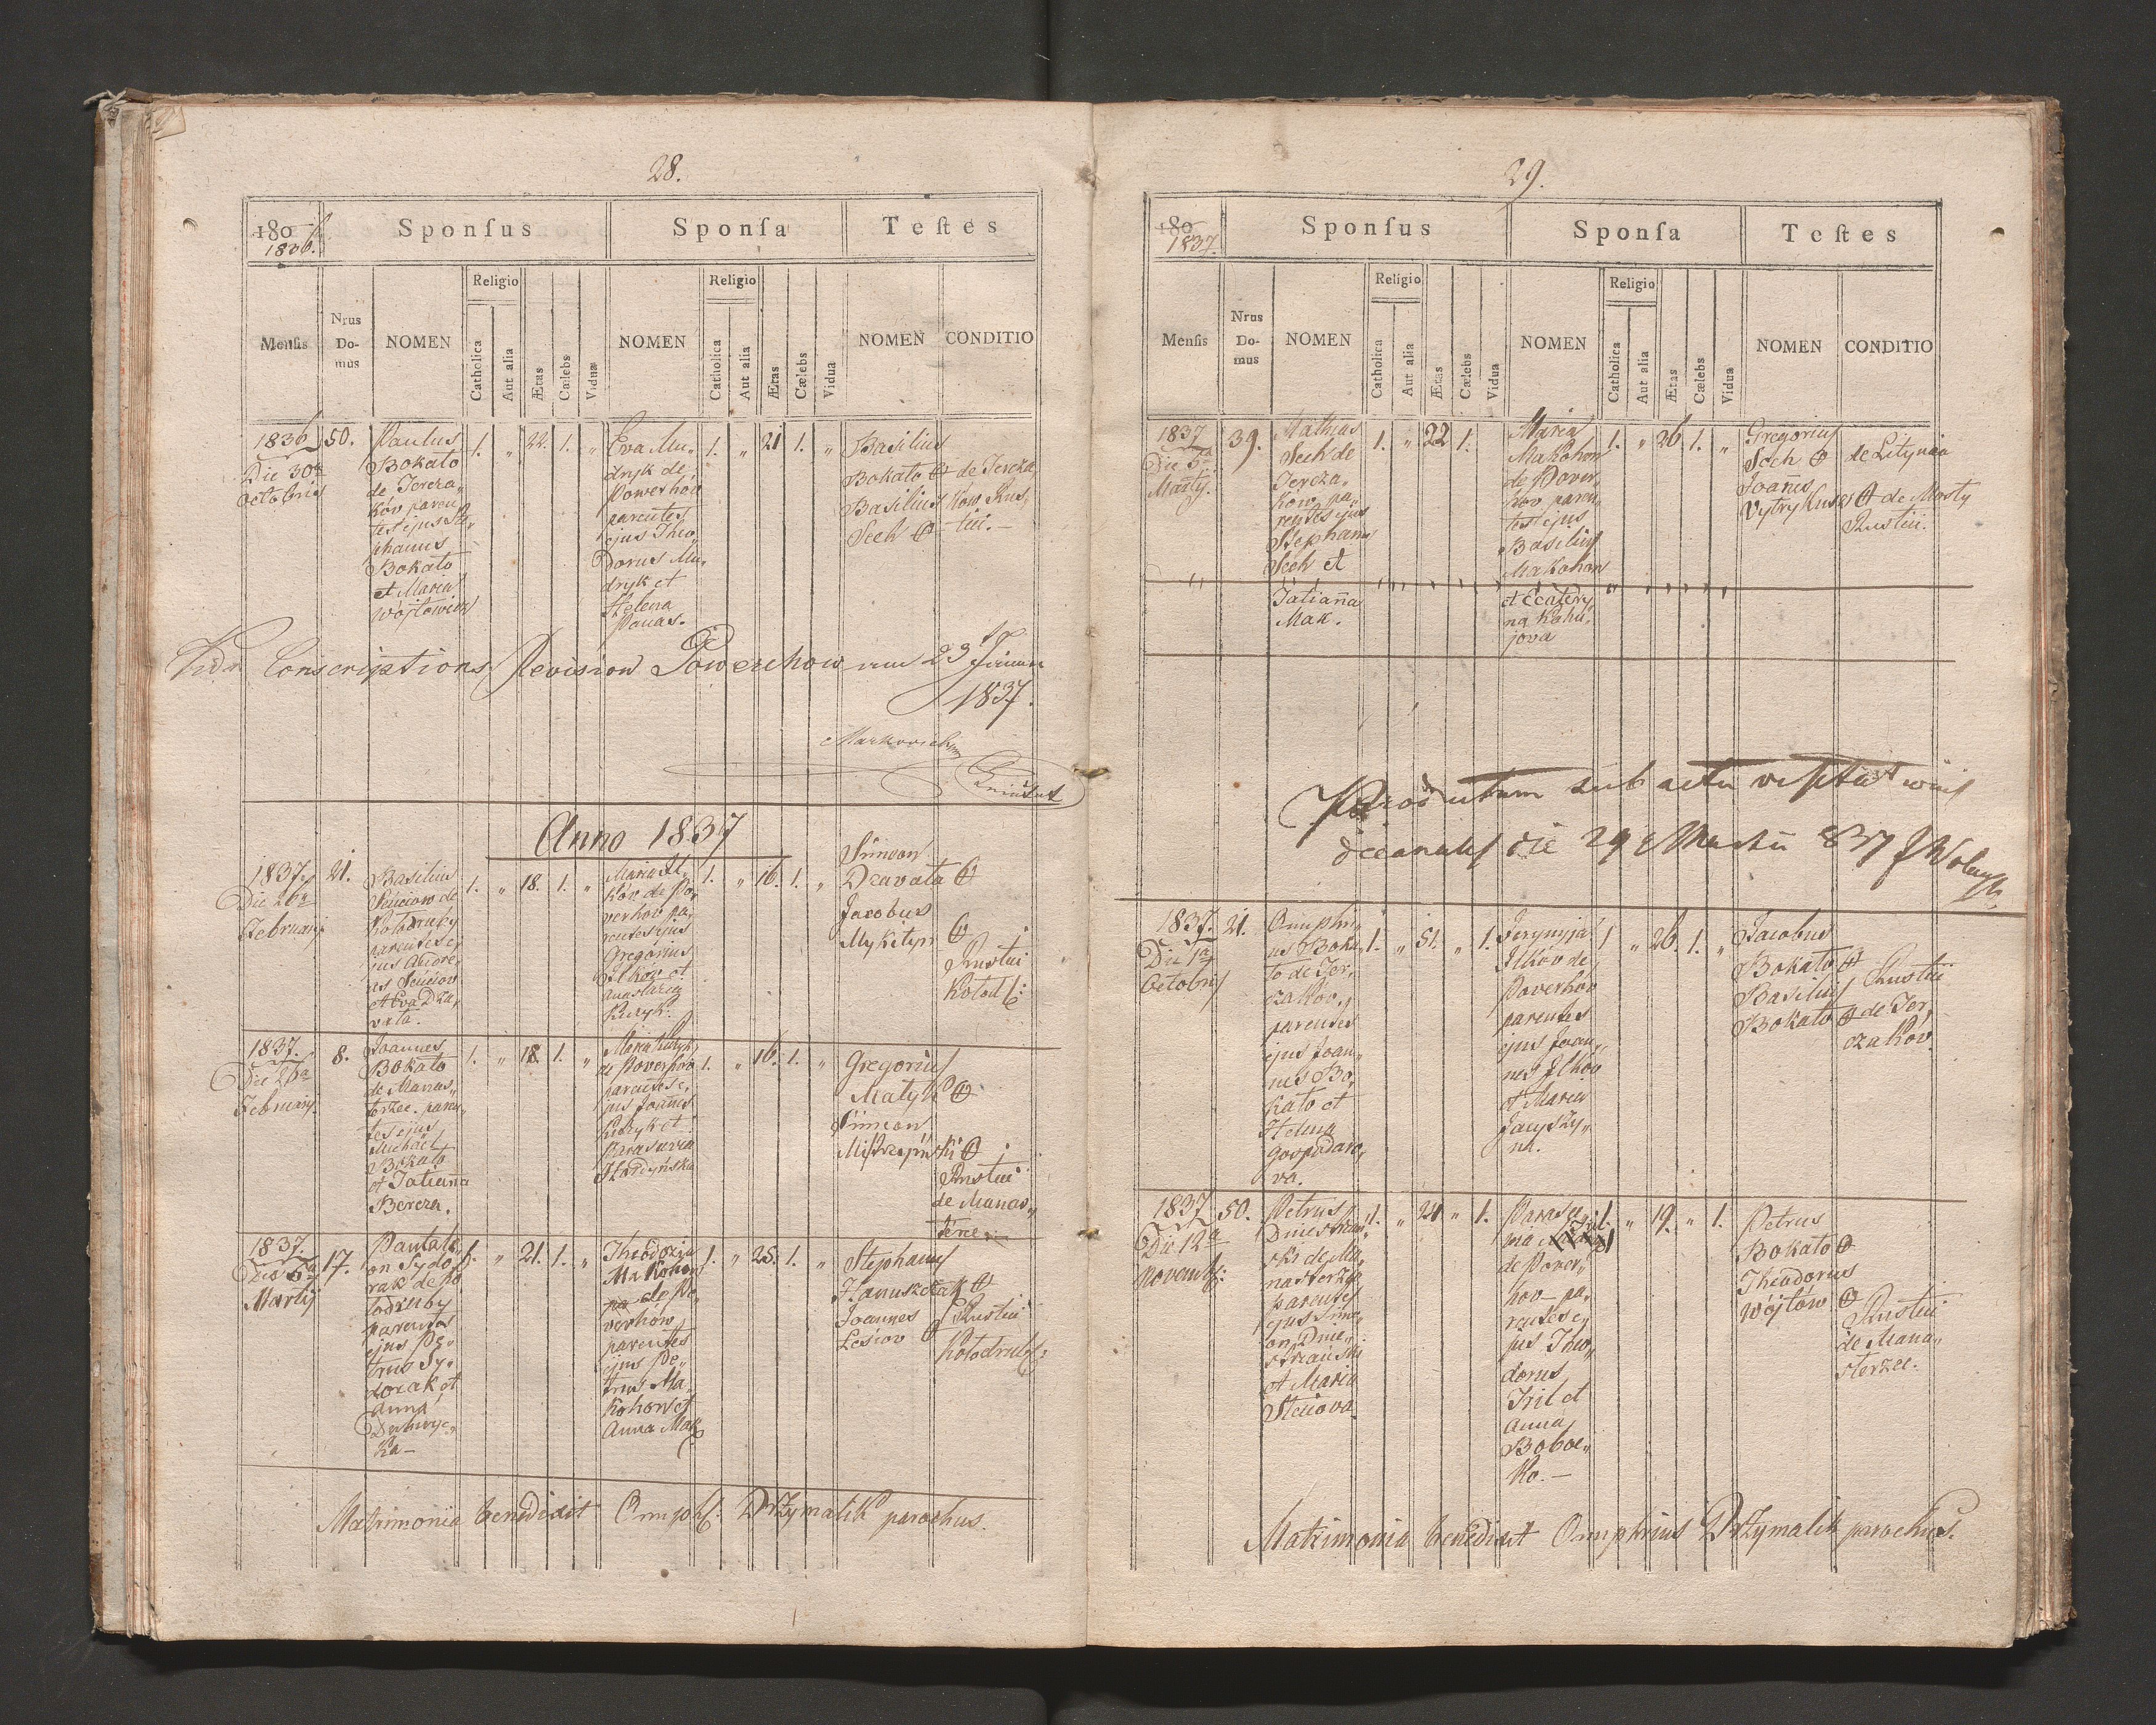 28.
180
1836.
Sponſus
Sponſa
Teſtes
Menſis
Nrus Do-mus
NOMEN
Religio
Catholica
Aut alia
Ætas
Cælebs
Vidua
NOMEN
Religio
Catholica
Aut alia
Ætas
Cælebs
Vidua
NOMEN
CONDITIO
1836
Die 30a
Octobris
50.
Paulus
Bokato
de Jereza„
ków paren„
tes ejus Ste„
phanus
Bokato
et Maria
Wójtowicz
1. „ 22. 1. „
Eva Mu„
dryk de
Powerhów
parentes
ejus Theo„
dorus Mu„
dryk et
Helena
Panas.
1. „ 21 1. „
Basilius
Bokato
Basilius
Sech
de Jereza
ków Rus„
tici.
Conscriptions Revision Powerchow am 23
1837.
Anno 1837
1837.
Die 26a
Februarij
21.
Basilius
Senciow de
Kołodruby
parentes e„
jus Andre„
as Senciow
et Eva Dza„
vata.
1. „ 18. 1. „
Maria Il„
ków de Po„
verhów pa„
rentes ejus
Gregorius
Ilków et
Anastazia
Kuzyk.
1. „ 16. 1. „
Simeon
Dzavata
Jacobus
Mykityn
Rustici
Kołod:
1837.
Die 26a
Februarij.
8.
Joannes
Bokato
de Manas„
terzec. paren„
tes ejus
Michael
Bokato
et Tatianna
Bereza.
1. „ 18 1. „
Maria Kuzyk
de Poverhów
parentes e„
jus Joannes
Kuzyk et
Parasevia
Hordynska
1. „ 16. 1. „
Gregorius
Matyk
Simeon
Rustici
de Manas„
terzec.
1837.
Die 5a
Martij
17.
Pantale„
on Sydo„
rak de Ko„
lodruby
parentes
ejus Pe„
trus Sy„
dorak et
Anna
1. „ 21. 1. „
Theodozia
Makohon
de Po„
verhów
parentes
ejus Pe„
trus Ma„
kohon et
Anna Mak
1. „ 25. 1. „
Stephanus
Hanuszczak
Joannes
Lesiow
Rustici
Kołodrub:
Matrimonia benedixit Onuph: Drzymalik parochus.
29.
180
1837.
Sponſus
Sponſa
Teſtes
Menſis
Nrus Do-mus
NOMEN
Religio
Catholica
Aut alia
Ætas
Cælebs
Vidua
NOMEN
Religio
Catholica
Aut alia
Ætas
Cælebs
Vidua
NOMEN
CONDITIO
1837
Die 5a
Martij.
39.
Mathias
Sech de
Jereza„
ków, pa„
rentes ejus
Stephanus
Sech et
Tatianna
Mak.
1. „ 22 1.
Maria
Makohon
de Pover„
hov paren„
tes ejus
Basilius
Makohon
et Ecatery„
na Kohu„
jova
1. „ 26 1. „
Gregorius
Sech
Joanes
Vytrykus
de Litynia
de Mosty
Rustici.
Productum sub actu
decanalis die 29 Martii 837
1837.
Die 1a
Octobris
21.
Onuphri„
us Boka„
to de Jer„
zaków,
parentes
ejus Joan„
nes Bo„
kato et
Helena
Gospodaro„
va.
1. „ 51. „ 1.
Ilków de
Poverhov
parentes
ejus Joan„
nes Ilków
et Maria
Jacyszy„
na.
1 „ 26 1. „
Jacobus
Bokato
Basilius
Bokato
Rustici
de Jer„
czakow.
1837
Die 12a
Novemb:
50.
Petrus
Dniestrzan„
ski de Ma„
nasterzec
parentes
ejus Sime„
on Dnie„
strzański
et Maria
Stenova
1. „ 24 „ 1.
Parasce„
de Pover„
hov pa„
rentes e„
jus Theo„
dorus
Iril et
Anna
Boboe„
ko.
1. „ 19. „ 1.
Petrus
Bokato
Theodorus
Wójtów
Rustici
de Mana„
sterzec.
Matrimonia benedixit Onuphrius Drzymalik parochus.